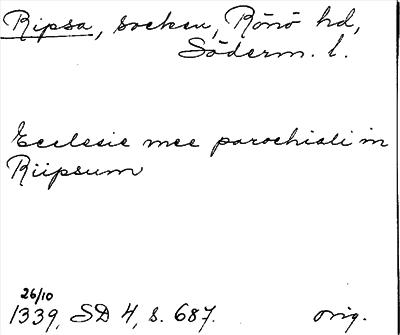 Ripsa, socken, Rönö hd,
Söderm. l.
Ecclesie mee parochiali in
Riipsum
26/10
1339, SD 4, s. 687. orig.